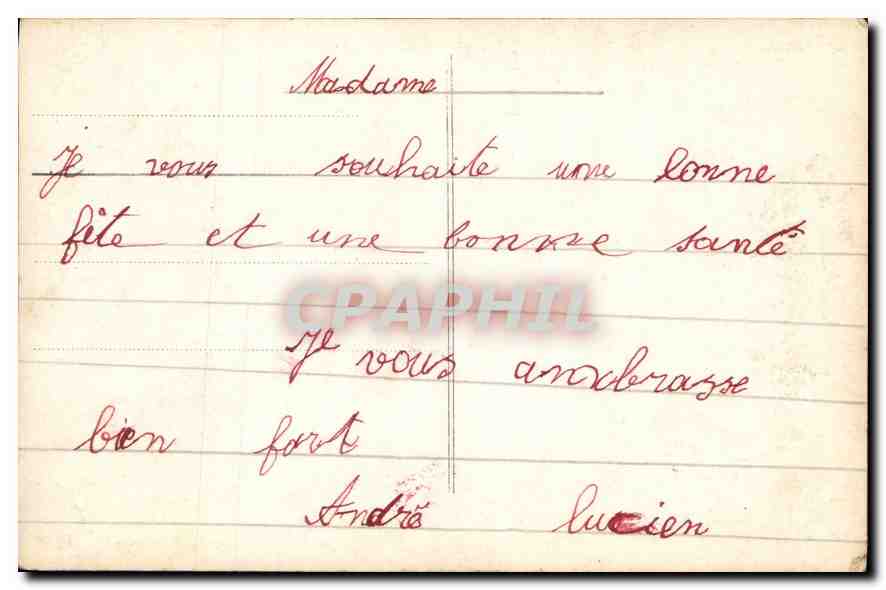 Madame
Je vous souhaite une bonne
fête et une bonne santé
CPAPHIL
Je vous ambrasse
bien fort
André lucien